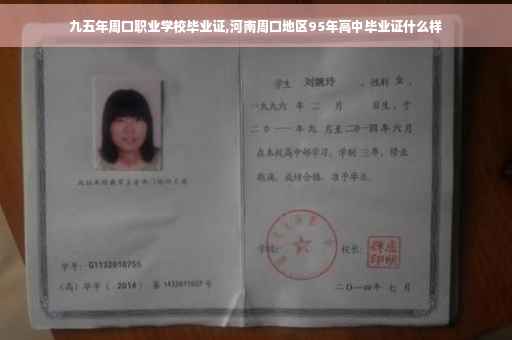 九五年周口职业学校毕业证,河南周口地区95年高中毕业证什么样
学生 刘婉玲 ,性别 女 ,
一九九六 年 二 月 日生,于
二〇一一年九 月至二〇一四年六月
在本校高中部学习,学制 三年,修业
期满,成绩合格,准予毕业。
学校:
校长:
学号: G1132010755
(高)毕字( 2014 )第 1432011027 号
二〇一四年 七 月